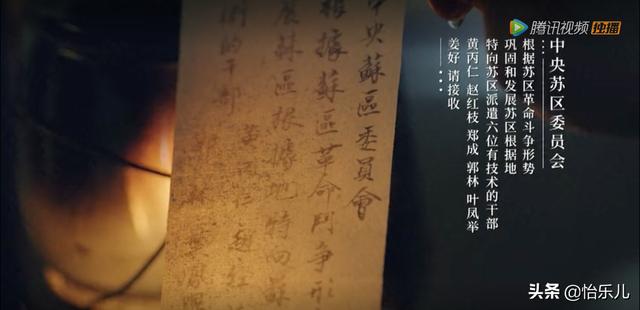 腾讯视频 独播
中央苏区委员会
根据苏区革命斗争形势
巩固和发展苏区根据地
特向苏区派遣六位有技术的干部
黄丙仁 赵红枝 郑成 郭林 叶凤举
姜好 请接收
中央蘇區委員會
根據蘇區革命鬥爭形
展蘇區根據地特向蘇
術的干部
黄丙仁 趙紅
头条 @怡乐儿